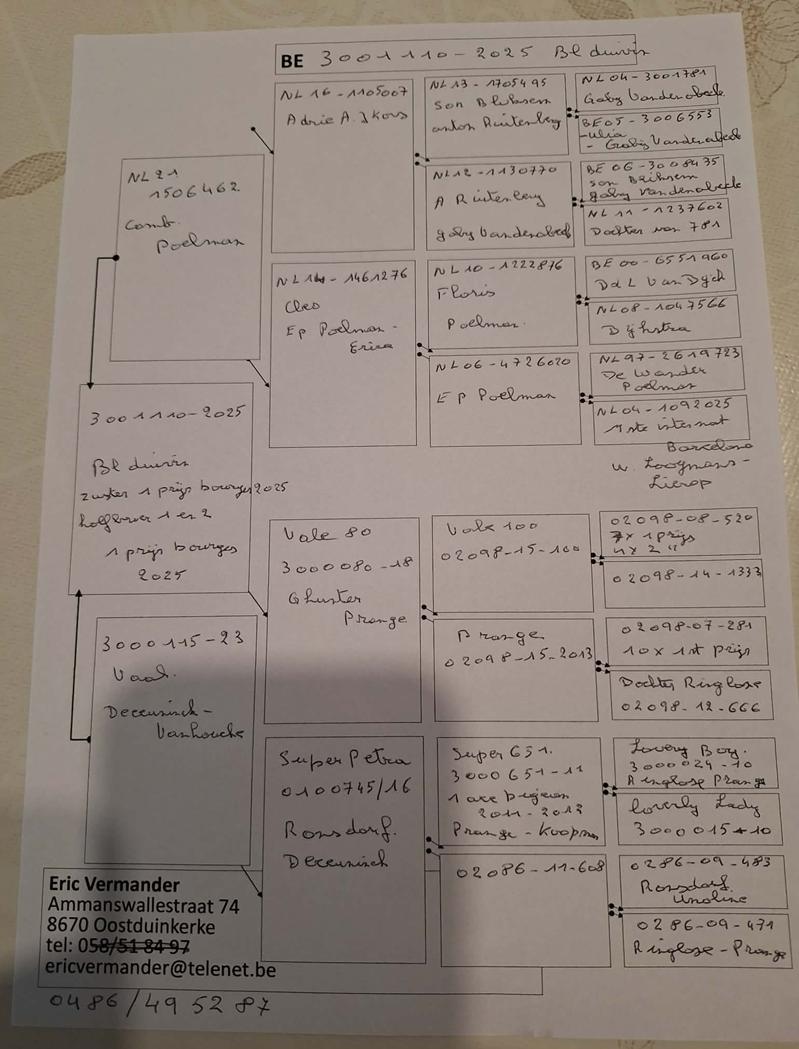 BE 3001110-2025 Bl duivin
NL 16-1105007
Adrie A.
NL 13-1705495
Son Bluksem
anton Ruitenberg
NL 04-3001781
Gaby Vandenabeele
BE 05-3006553
- Gaby Vandenabeele
NL 21
1506462
Comb.
Poelman
NL 12-1130770
A Ruitenberg
gaby Vandenabeel
BE 06-3008435
son Bliksem
gaby Vandenabeele
NL 11-1237602
Dochter van 781
NL 14-1461276
Cleo
Ep Poelman -
Erica
NL 10-1222876
Floris
Poelman
BE 00-6551960
D d L Van Dyck
NL 08-1047566
Dijkstra
NL 06-4726020
E p Poelman
NL 97-2619723
De Wander
Poelman
NL 04-1092025
1ste internat
Barcelona
3001110-2025
Bl duivin
zuster 1 prijs bourges 2025
halfbroer 1 en 2
1 prijs bourges
2025
Vale 80
3000080-18
Ghuster
Prange
Vale 100
02098-15-100
02098-08-520
7x 1 prijs
4x 2 "
02098-14-1333
Prange
02098-15-2013
02098-07-281
10 x 1st prijs
Dochter Ringlose
02098-12-666
3000115-23
Vaal.
Deceuninck -
Vanhoucke
Super Petra
0100745/16
Ronsdorf.
Deceuninck
Super 651.
3000651-11
1 ace
2011-2012
Prange - Koopman
Lovery Boy.
3000024-10
Ringlose Prange
loverly Lady
3000015-10
02086-11-608
0286-09-483
Ronsdorf.
0286-09-471
Ringlose - Prange
Eric Vermander
Ammanswallestraat 74
8670 Oostduinkerke
tel: 058/51 84 97
ericvermander@telenet.be
0486/49 52 87